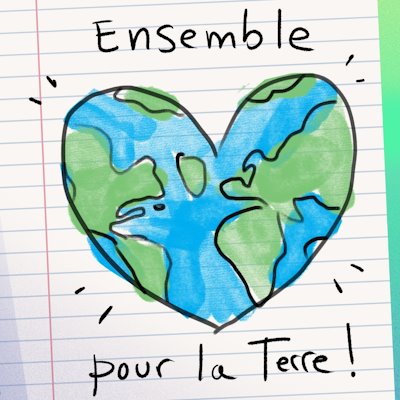 Ensemble
pour la Terre !